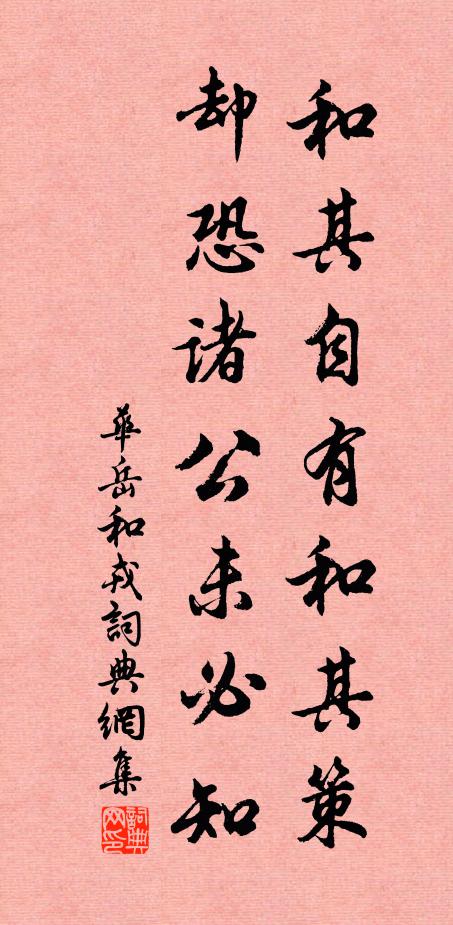 和其自有和其策
却恐諸公未必知
華岳和戎詞典網集
詞典
网印